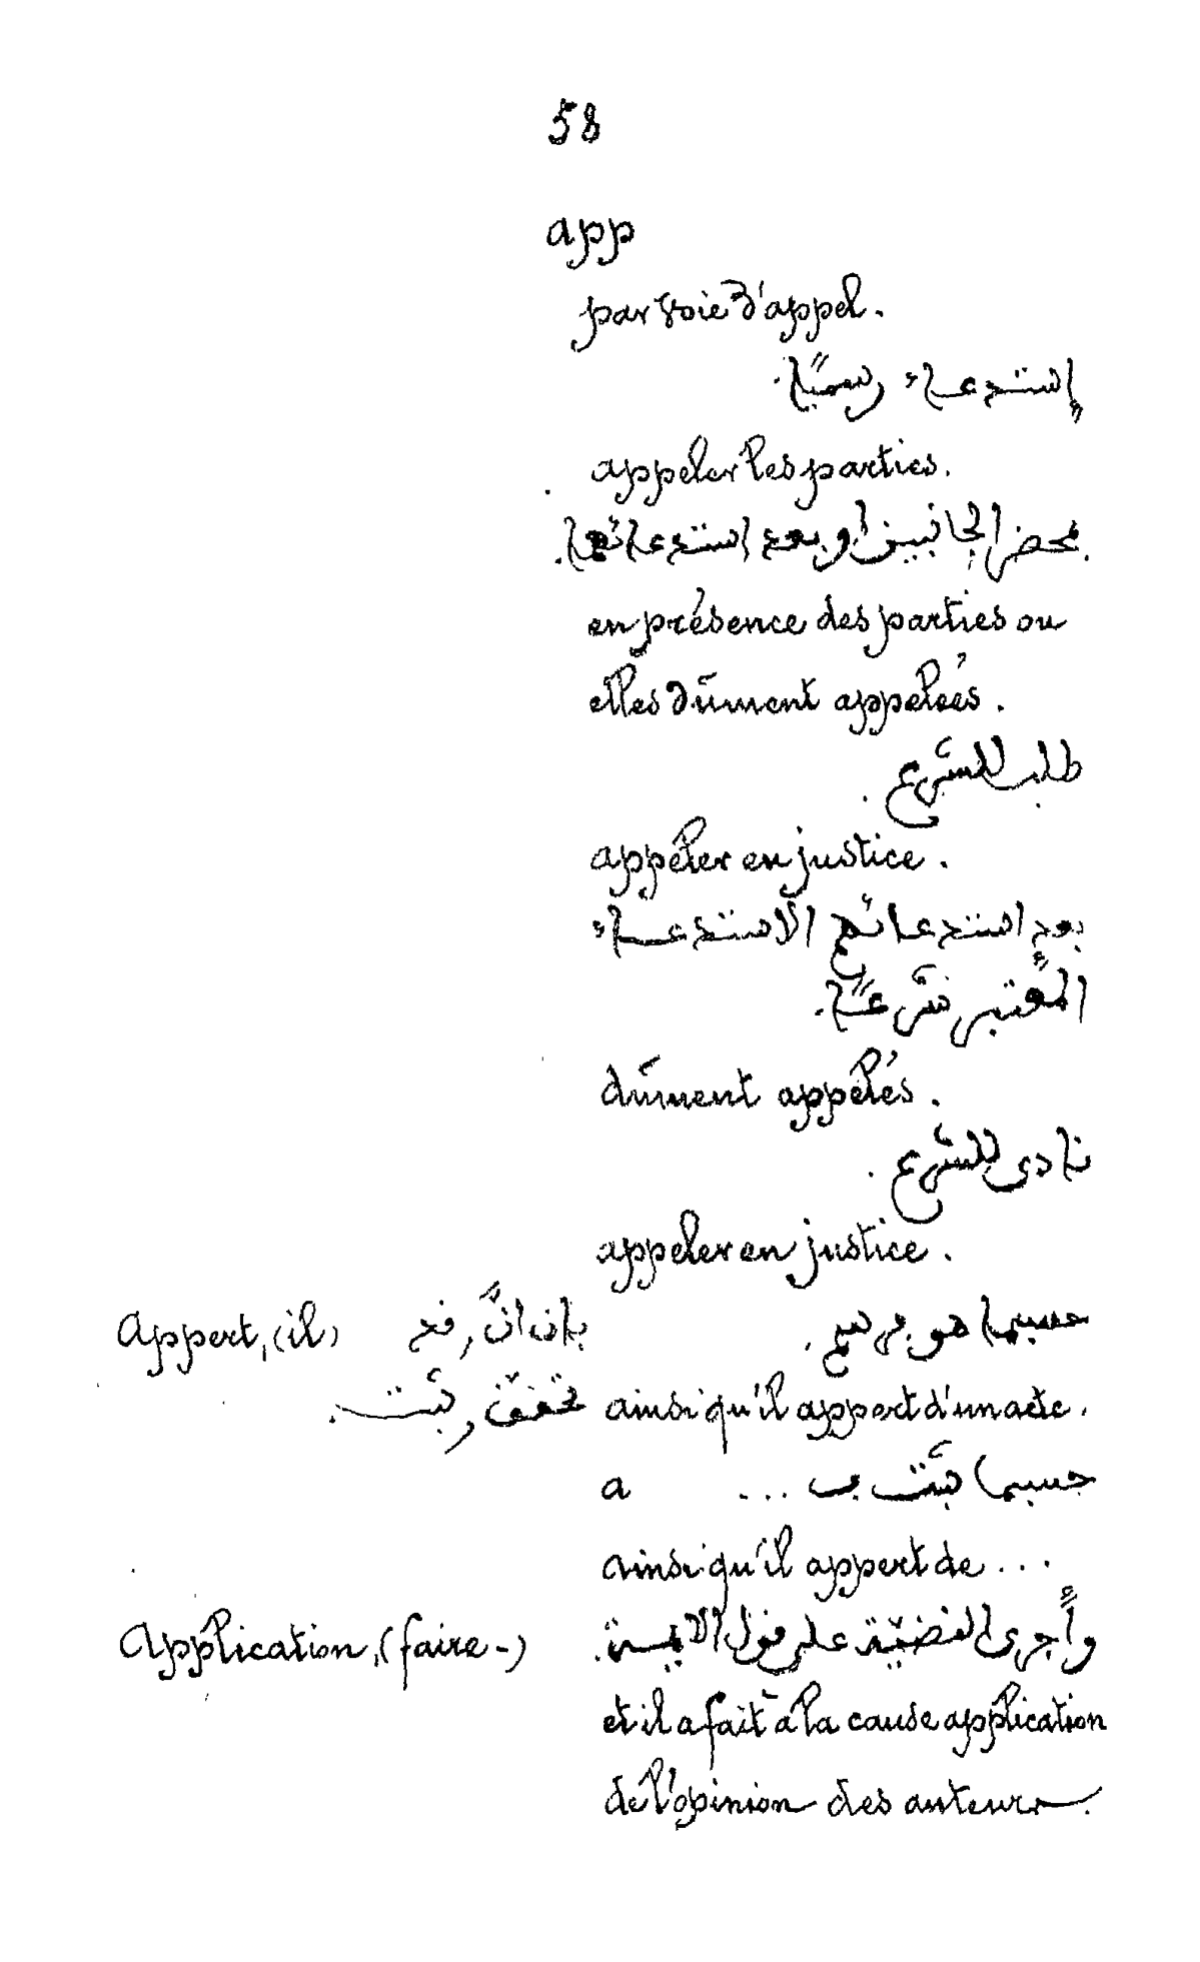 58
app
par voie d'appel.
إستدعاء رسميًّا.
appeler les parties.
بمحضر الجانبين أو بعد استدعائهما.
en présence des parties ou
elles dûment appelées.
طلب للشرع.
appeler en justice.
بعد استدعائهم الاستدعاء
المعتبر شرعًا.
dûment appelés.
نادى للشرع.
appeler en justice.
Appert, (il) بان انّ, قد
حسبما هو برسم.
تحقق, ثبت.
ainsi qu'il appert d'un acte.
a حسبما ثبت ب ...
ainsi qu'il appert de ...
Application, (faire -) وأجرى القضيّة على قول الايمة.
et il a fait à la cause application
de l'opinion des auteurs.